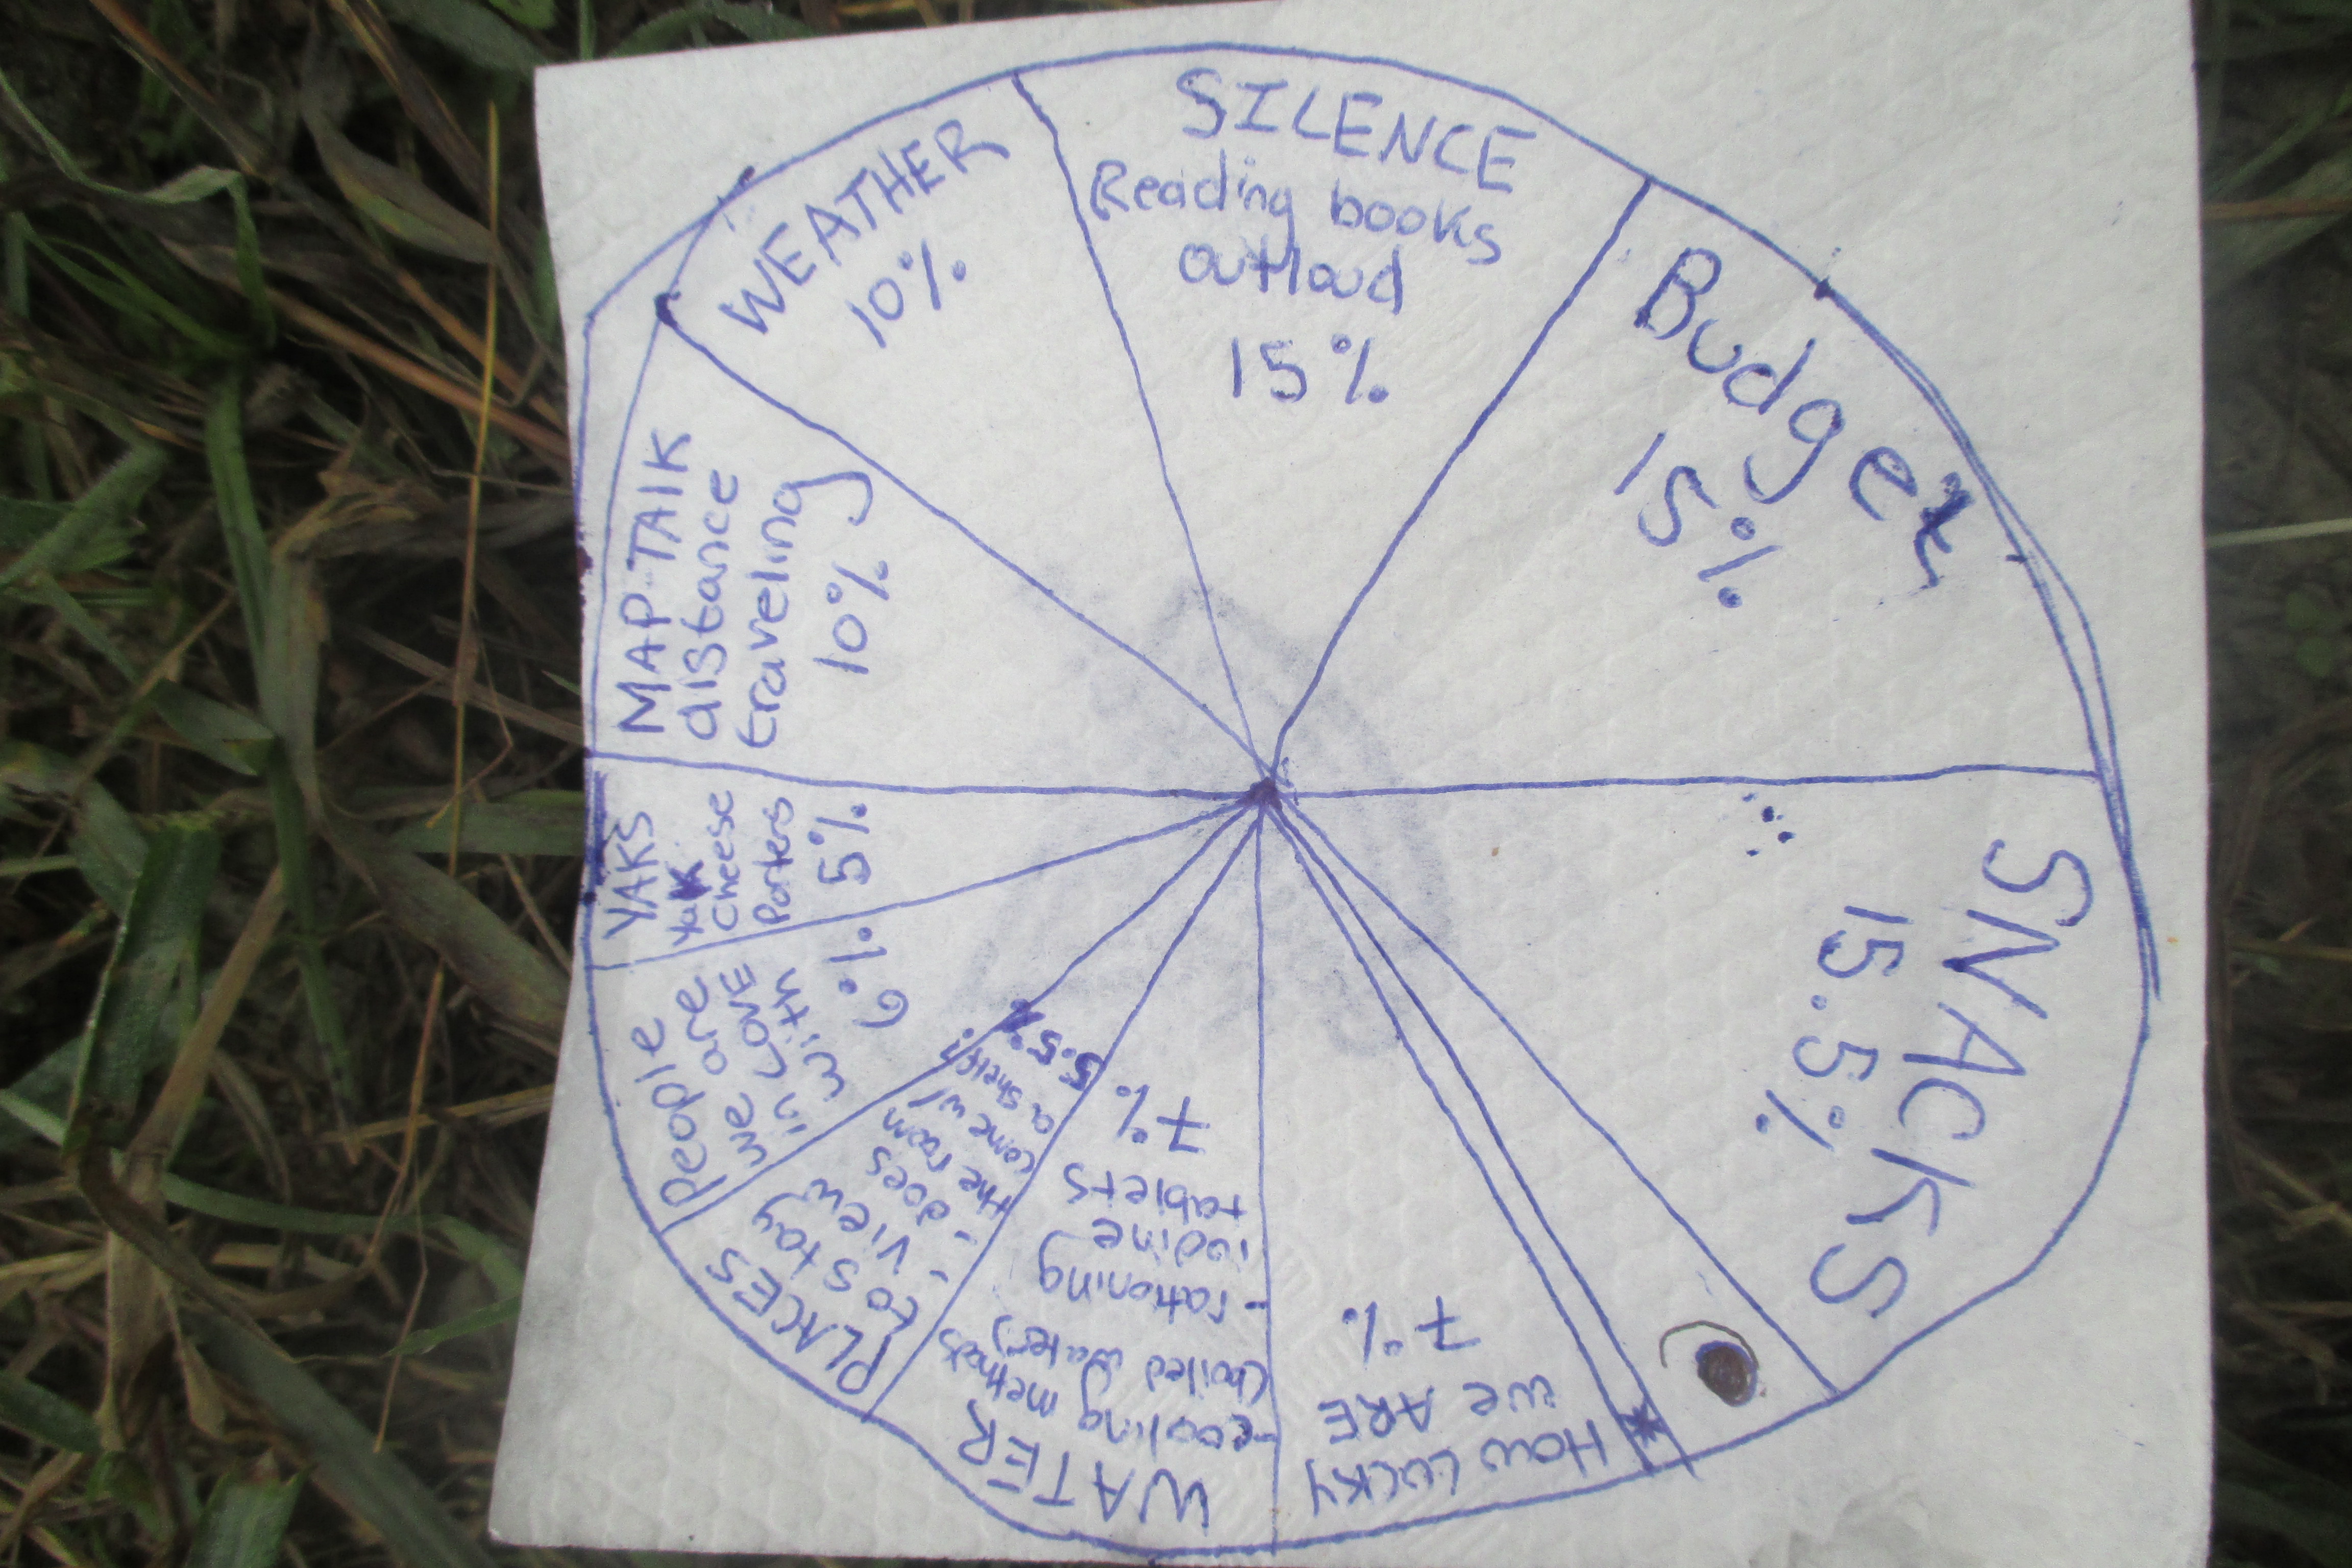 SILENCE
Reading books
outloud
15%
Budget
15%
SNACKS
15.5%
HOW LUCKY
WE ARE
7%
WATER
-cooling methods
(boiled water)
-rationing
iodine
tablets
7%
PLACES
to stay
- view
- does
the room
come w/
a shelf?
5.5%
People
we are
in LOVE
with
6%
YAKS
Yak
Cheese
Porters
5%
MAP-TALK
distance
traveling
10%
WEATHER
10%